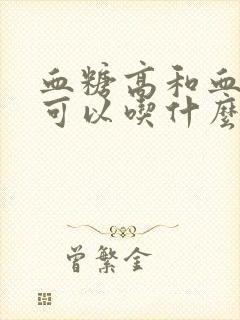 血糖高和血
可以喫什麼
曾繁金